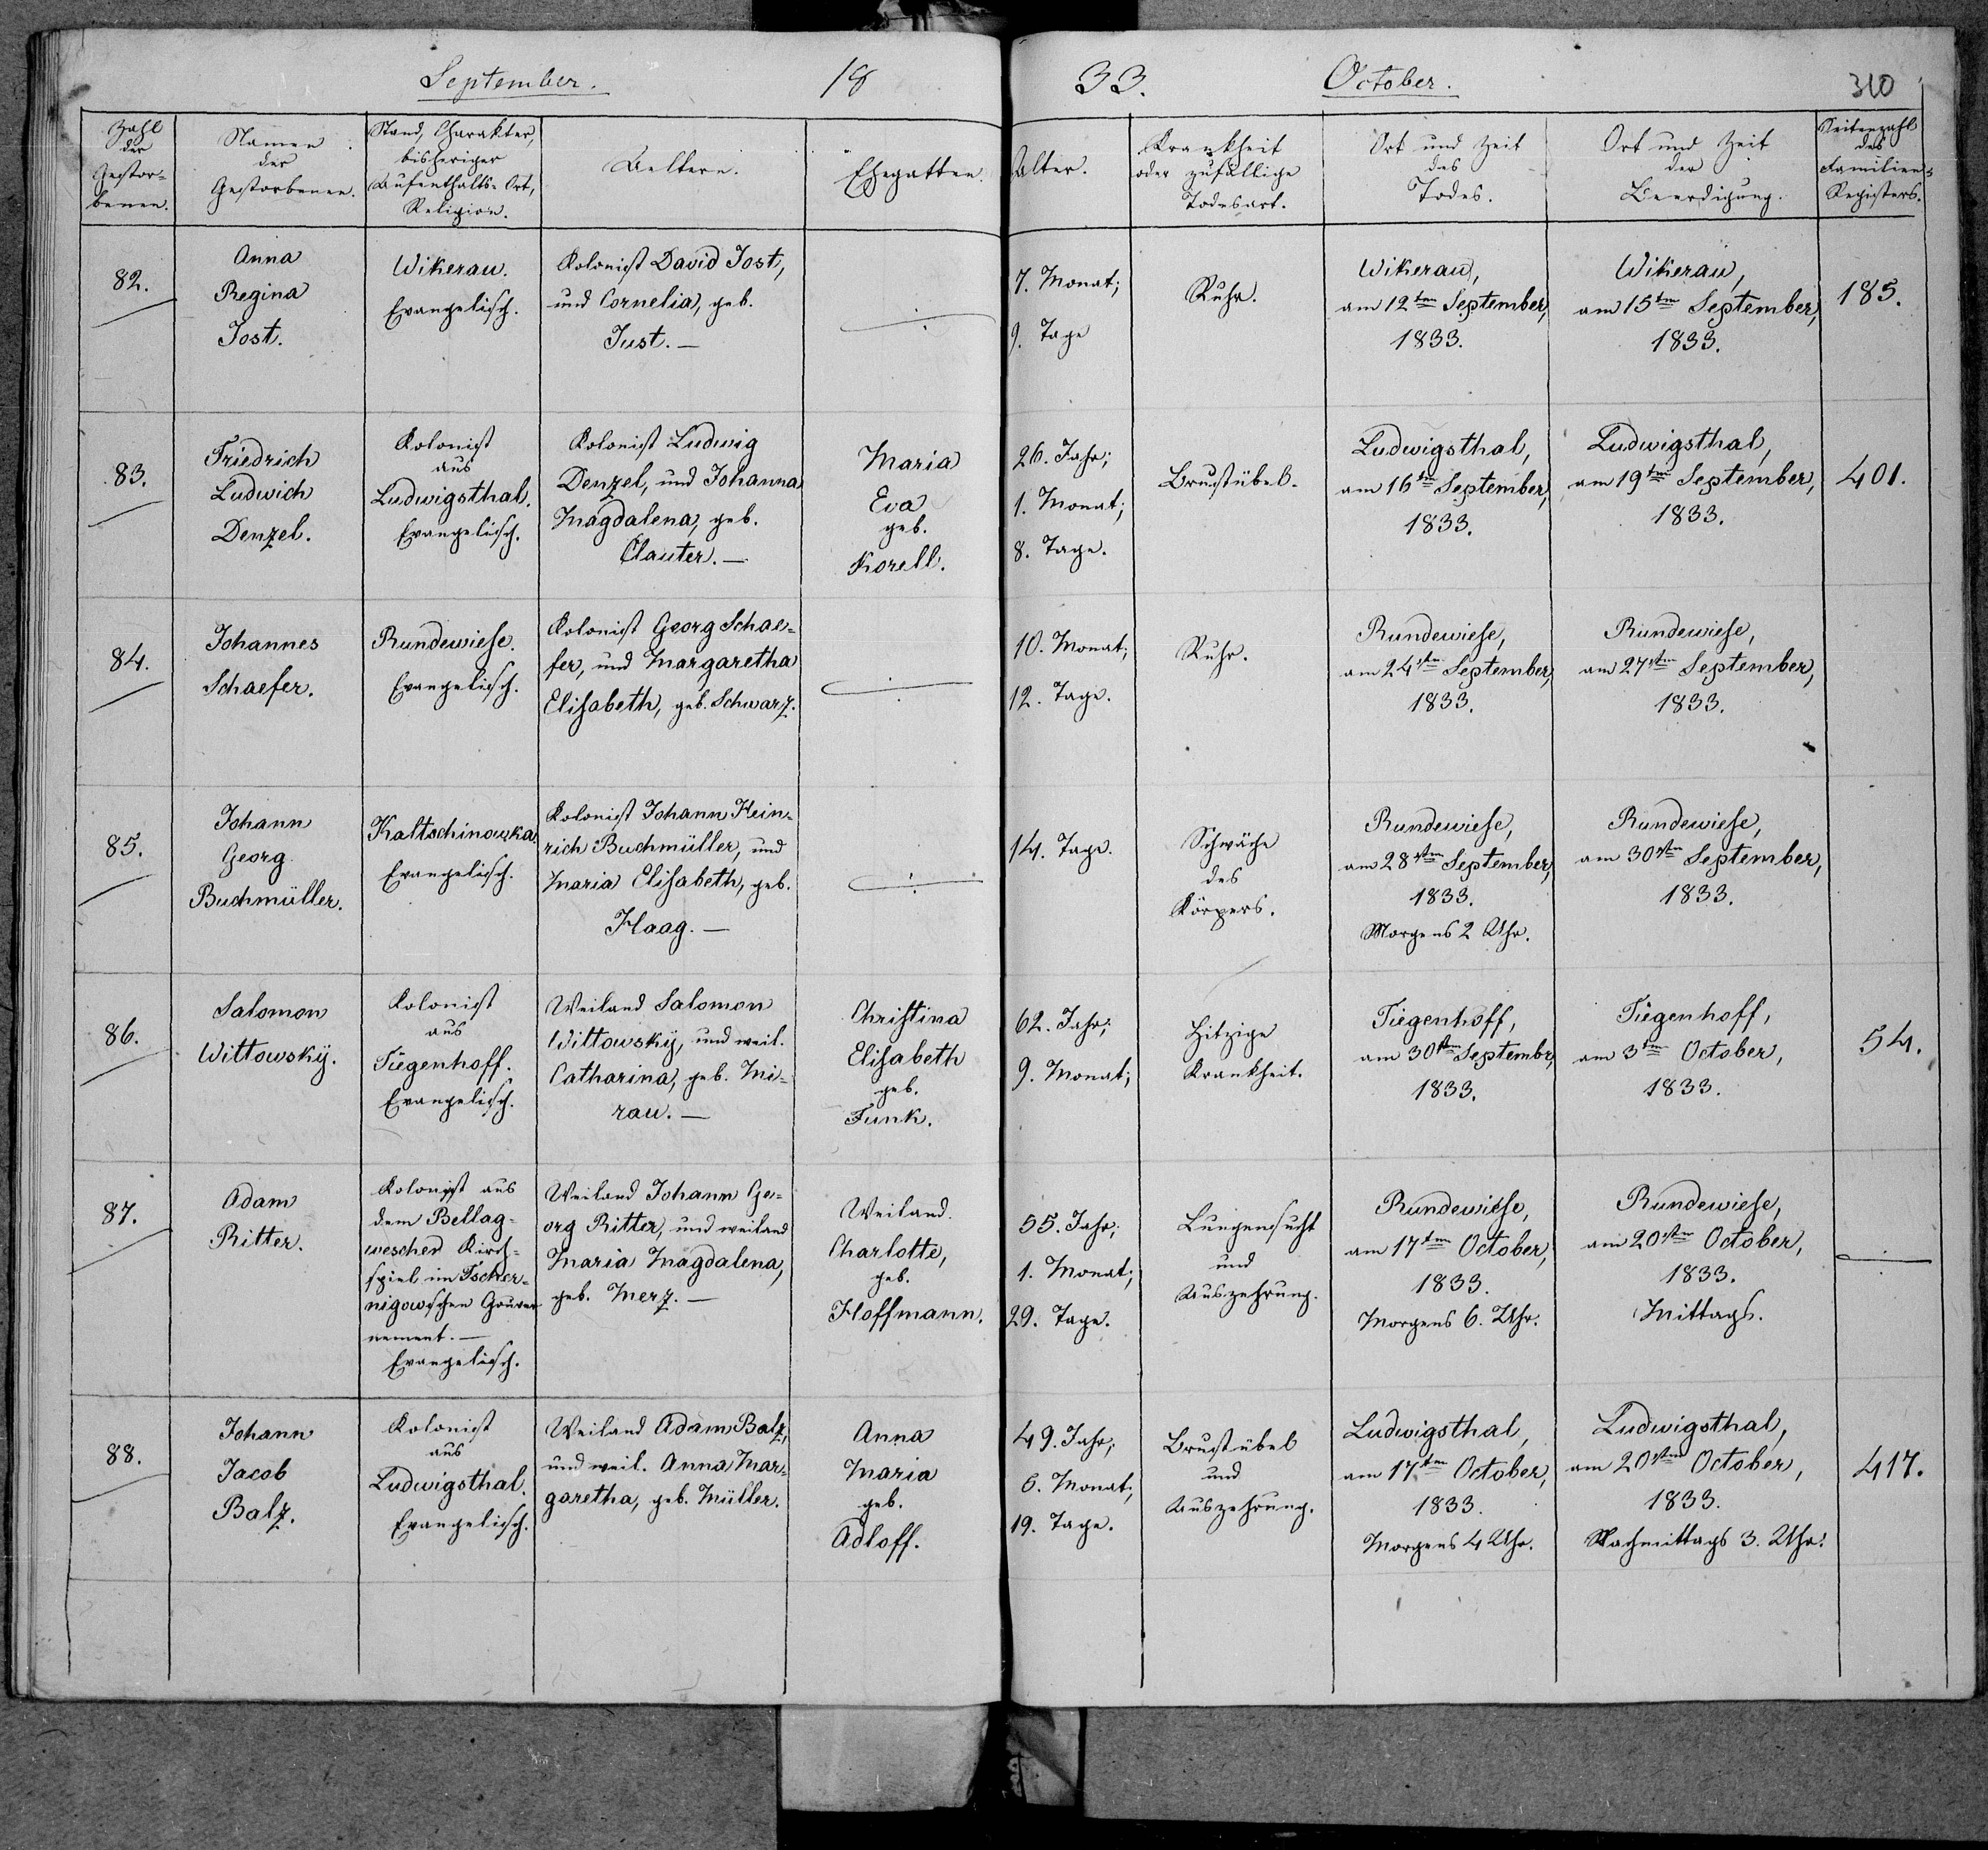 September. 18
33. October. 310
Zahl
der
Gestor-
benen.
Namen
der
Gestorbenen.
Stand, Charakter,
bisheriger
Aufenthalts-Ort,
Religion.
Aeltern.
Ehegatten.
Alter.
Krankheit
oder zufällige
Todesart.
Ort und Zeit
des
Todes.
Ort und Zeit
der
Beerdigung.
Seitenzahl
des
Familien-
Registers.
82.
Anna
Regina
Jost.
Wikerau.
Evangelisch.
Kolonist David Jost,
und Cornelia, geb.
Just. —
7. Monat;
9. Tage
Ruhr.
Wikerau,
am 12ten September,
1833.
Wikerau,
am 15ten September,
1833.
185.
83.
Friedrich
Ludwich
Denzel.
Kolonist
aus
Ludwigsthal.
Evangelisch.
Kolonist Ludwig
Denzel, und Johanna
Magdalena, geb.
Clauter. —
Maria
Eva
geb.
Korell.
26. Jahr;
1. Monat;
8. Tage.
Brustübel.
Ludwigsthal,
am 16ten September,
1833.
Ludwigsthal,
am 19ten September,
1833.
401.
84.
Johannes
Schaefer.
Rundewiese.
Evangelisch.
Kolonist Georg Schae-
fer, und Margaretha
Elisabeth, geb. Schwarz.
10. Monat;
12. Tage.
Ruhr.
Rundewiese,
am 24sten September,
1833.
Rundewiese,
am 27sten September,
1833.
85.
Johann
Georg
Buchmüller.
Kaltschinowka.
Evangelisch.
Kolonist Johann Hein-
rich Buchmüller, und
Maria Elisabeth, geb.
Haag. —
14. Tage.
Schwäche
des
Körpers.
Rundewiese,
am 28sten September,
1833.
Morgens 2 Uhr.
Rundewiese,
am 30sten September,
1833.
86.
Salomon
Wittowskÿ.
Kolonist
aus
Tiegenhoff.
Evangelisch.
Weiland Salomon
Wittowskÿ, und weil.
Catharina, geb. Mi-
rau. —
Christina
Elisabeth
geb.
Funk.
62. Jahr;
9. Monat;
Hitzige
Krankheit.
Tiegenhoff,
am 30sten Septembr,
1833.
Tiegenhoff,
am 3ten October,
1833.
54.
87.
Adam
Ritter.
Kolonist aus
dem Bellag-
wescher Kirch-
spiel im Tscher-
nigowschen Gouver
nement. —
Evangelisch.
Weiland Johann Ge-
org Ritter, und weiland
Maria Magdalena,
geb. Merz. —
Weiland
Charlotte,
geb.
Hoffmann.
55. Jahr;
1. Monat;
29. Tage.
Lungensucht
und
Auszehrung.
Rundewiese,
am 17ten October,
1833.
Morgens 6. Uhr.
Rundewiese,
am 20sten October,
1833.
Mittags.
88.
Johann
Jacob
Balz.
Kolonist
aus
Ludwigsthal.
Evangelisch.
Weiland Adam Balz,
und weil. Anna Mar-
garetha, geb. Müller.
Anna
Maria
geb.
Adloff.
49. Jahr;
6. Monat;
19. Tage.
Brustübel
und
Auszehrung.
Ludwigsthal,
am 17ten October,
1833.
Morgens 4 Uhr.
Ludwigsthal,
am 20sten October,
1833.
Nachmittags 3. Uhr.
417.